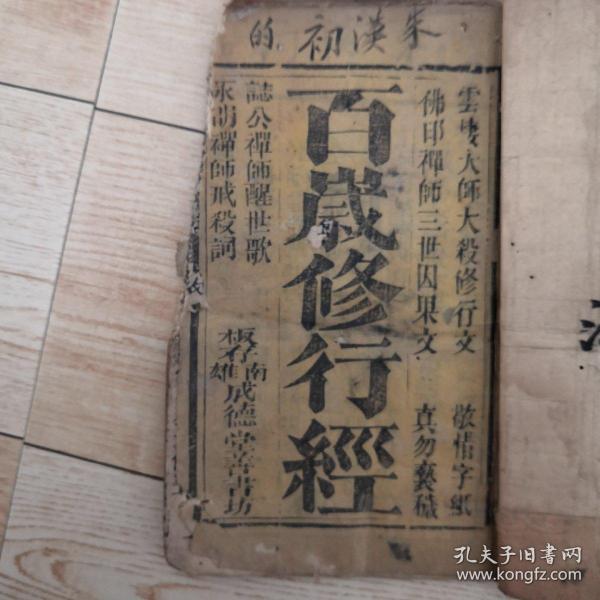 朱漢初的
雲棲大師大殺修行文 敬惜字紙
佛印禪師三世因果文 真勿褻穢
百歲修行經
誌公禪師醒世歌
永明禪師戒殺詞
板存南雄成德堂善書坊
孔夫子旧书网
www.kongfz.com